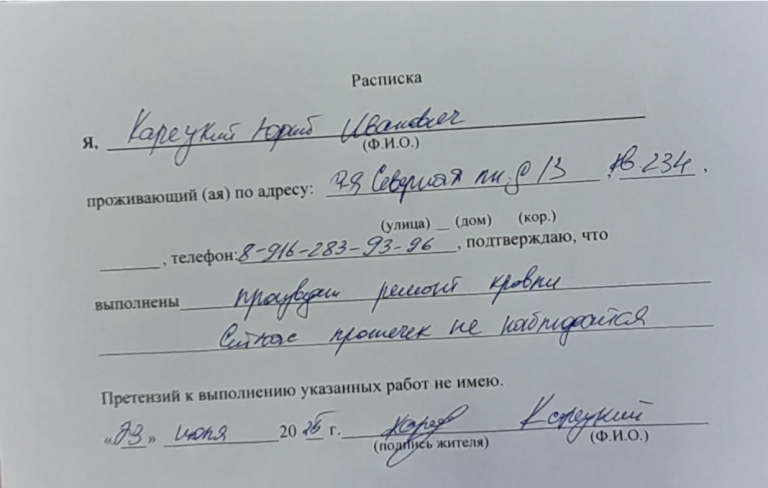 Расписка
Я, Карецкий Юрий Иванович
(Ф.И.О.)
проживающий (ая) по адресу: 7я Северная л. д 13 кв. 234.
(улица) __ (дом) (кор.)
, телефон: 8-916-283-93-96, подтверждаю, что
выполнены произведен ремонт кровли
протечек не наблюдается
Претензий к выполнению указанных работ не имею.
« » июля 20 25 г. Карецкий
(подпись жителя) (Ф.И.О.)